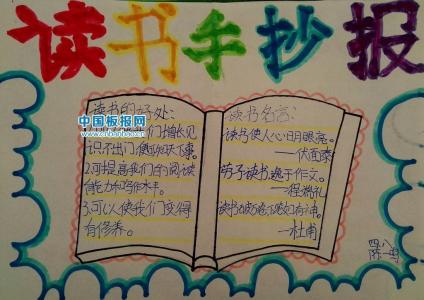 读书手抄报
中国板报网
www.banbao.cn
读书的好处:
们增长见
识不出门,便知天下事。
2.可以提高我们的阅读
能力和写作水平。
3.可以使我们变得
有修养。
读书名言:
读书使人心明眼亮。
——伏面泰
劳于读书,逸于作文。
——程端礼
——杜甫
四八